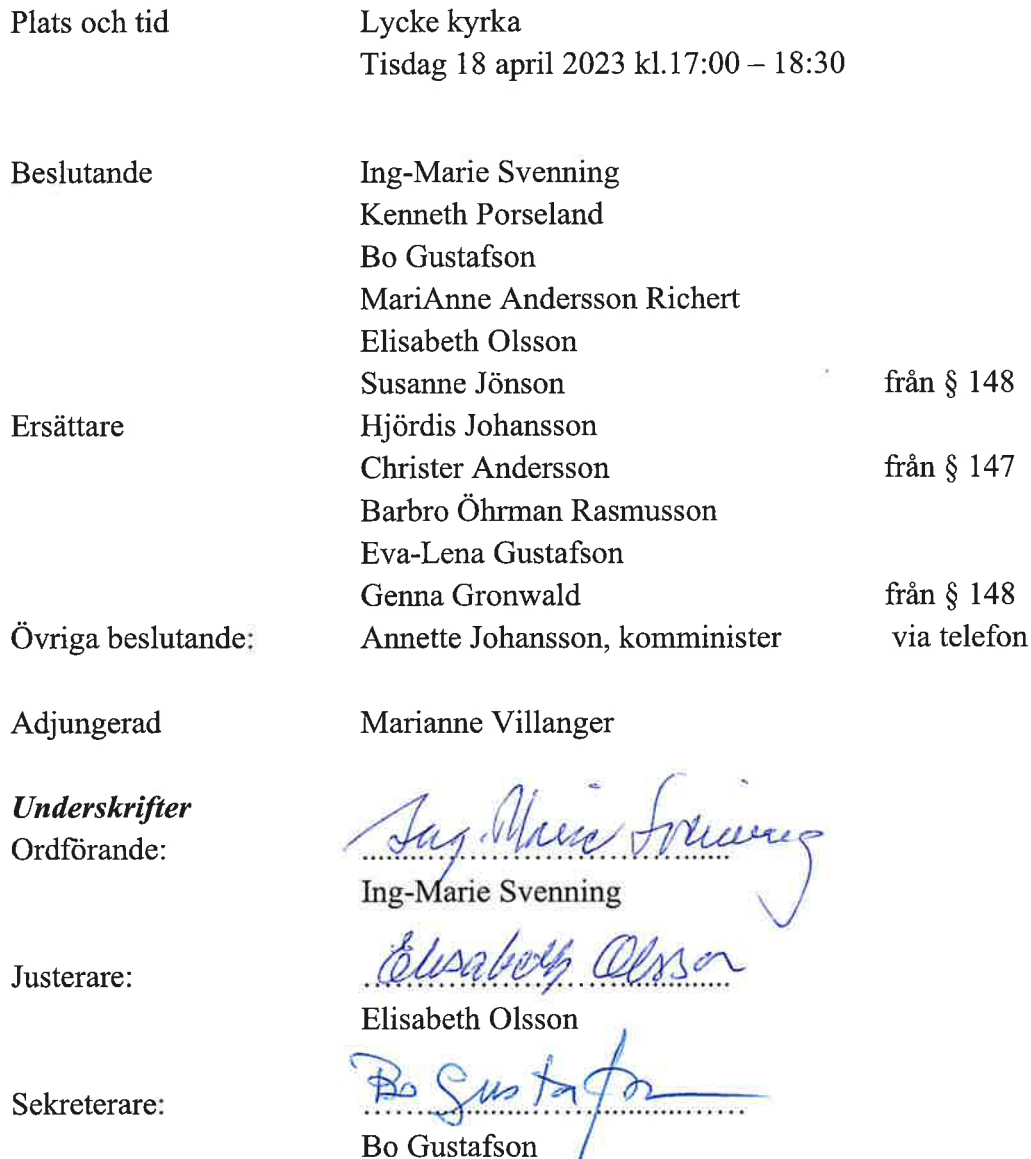 Plats och tid Lycke kyrka
Tisdag 18 april 2023 kl.17:00 – 18:30
Beslutande Ing-Marie Svenning
Kenneth Porseland
Bo Gustafson
MariAnne Andersson Richert
Elisabeth Olsson
Susanne Jönson från § 148
Ersättare Hjördis Johansson
Christer Andersson från § 147
Barbro Öhrman Rasmusson
Eva-Lena Gustafson
Genna Gronwald från § 148
Övriga beslutande: Annette Johansson, komminister via telefon
Adjungerad Marianne Villanger
Underskrifter
Ordförande: Ing-Marie Svenning
Ing-Marie Svenning
Justerare: Elisabeth Olsson
Elisabeth Olsson
Sekreterare: Bo Gustafson
Bo Gustafson